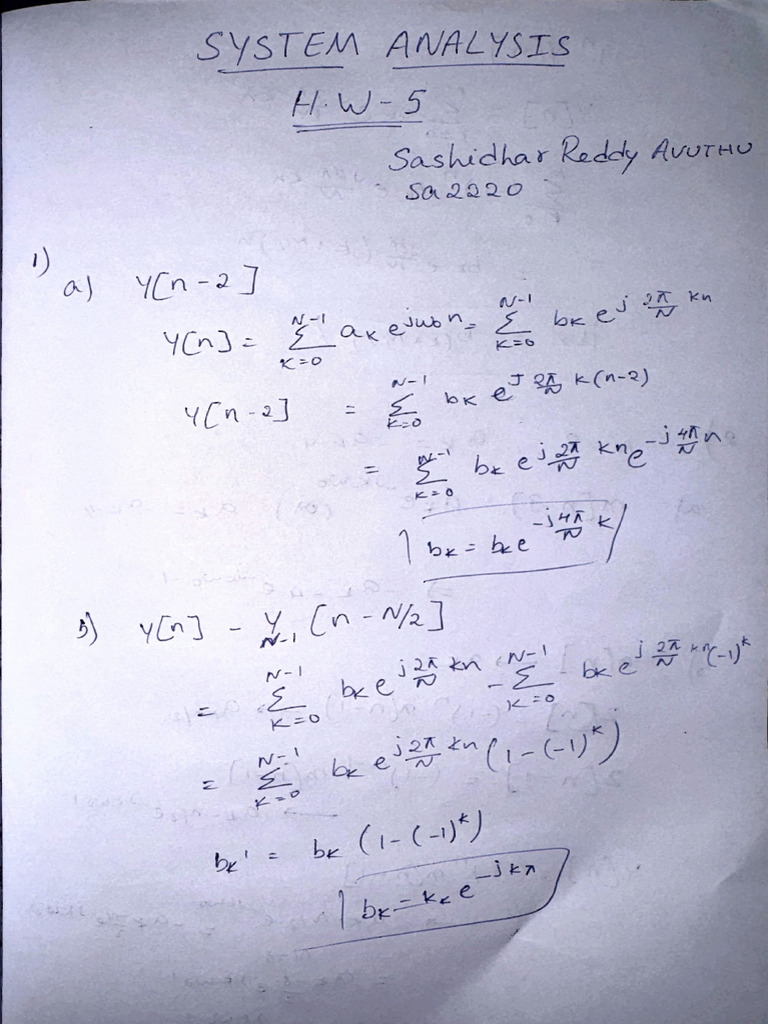 SYSTEM ANALYSIS
H.W-5
Sashidhar Reddy AVUTHU
sa2220
1)
a) y[n-2]
y[n] = Σ_{k=0}^{N-1} a_k e^{jω₀n} = Σ_{k=0}^{N-1} b_k e^{j 2π/N kn}
y[n-2] = Σ_{k=0}^{N-1} b_k e^{J 2π/N k(n-2)}
= Σ_{k=0}^{N-1} b_k e^{j 2π/N kn} e^{-j 4π/N n}
b_k = b_k e^{-j 4π/N k}
b) y[n] - y[n-N/2]
N-1
= Σ_{k=0}^{N-1} b_k e^{j 2π/N kn} - Σ_{k=0}^{N-1} b_k e^{j 2π/N kn} (-1)^k
= Σ_{k=0}^{N-1} b_k e^{j 2π/N kn} (1-(-1)^k)
b_k' = b_k (1-(-1)^k)
b_k - k_k e^{-jkπ}